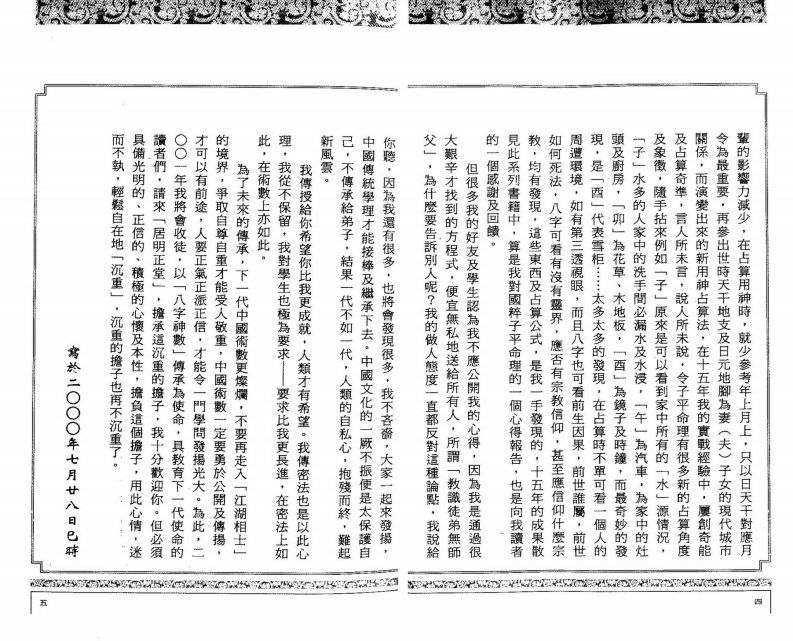 輩的影響力減少，在占算用神時，就少參考年上月上，只以日天干對應月
令為最重要，再參出世時天干地支及日元地腳為妻（夫）子女的現代城市
關係，而演變出來的新用神占算法，在十五年我的實戰經驗中，屢創奇能
及占算奇準，言人所未言，說人所未說，令子平命理有很多新的占算角度
及象徵，隨手拈來例如「子」原來是可以看到家中所有的「水」源情況，
「子」水多的人家中的洗手間必漏水及水浸，「午」為汽車，為家中的灶
頭及廚房，「卯」為花草、木地板，「酉」為鏡子及時鐘，而最奇妙的發
現，是「酉」代表雪柜……太多太多的發現，在占算時不單可看一個人的
周遭環境，如有第三透視眼，而且八字也可看前生因果，前世誰屬，前世
如何死法，八字可看有沒有靈界，應否有宗教信仰，甚至應信仰什麼宗
教，均有發現，這些東西及占算公式，是我一手發現的，十五年的成果散
見此系列書籍中，算是我對國粹子平命理的一個心得報告，也是向我讀者
的一個感謝及回饋。
但很多我的好友及學生認為我不應公開我的心得，因為我是通過很
大艱辛才找到的方程式，便宜無私地送給所有人，所謂「教識徒弟無師
父」，為什麼要告訴別人呢？我的做人態度一直都反對這種論點，我說給
四
你聽，因為我還有很多，也將會發現很多，我不吝嗇，大家一起來發揚，
中國傳統學理才能接棒及繼承下去。中國文化的一厥不振便是太保護自
己，不傳承給弟子，結果一代不如一代，人類的自私心，抱殘而終，難起
新風雲。
我傳授給你希望你比我更成就，人類才有希望。我傳密法也是以此心
理，我從不保留，我對學生也極為要求——要求比我更長進，在密法上如
此，在術數上亦如此。
為了未來的傳承，下一代中國術數更燦爛，不要再走入「江湖相士」
的境界，爭取自尊自重才能受人敬重，中國術數一定要勇於公開及傳揚，
才可以有前途，人要正氣正派正信，才能令一門學問發揚光大。為此，二
〇〇一年我將會收徒，以「八字神數」傳承為使命，具教育下一代使命的
讀者們，請來「居明正堂」，擔承這沉重的擔子，我十分歡迎你。但必須
具備光明的、正信的、積極的心懷及本性，擔負這個擔子，用此心情，迷
而不執，輕鬆自在地「沉重」，沉重的擔子也再不沉重了。
寫於二〇〇〇年七月廿八日巳時
五